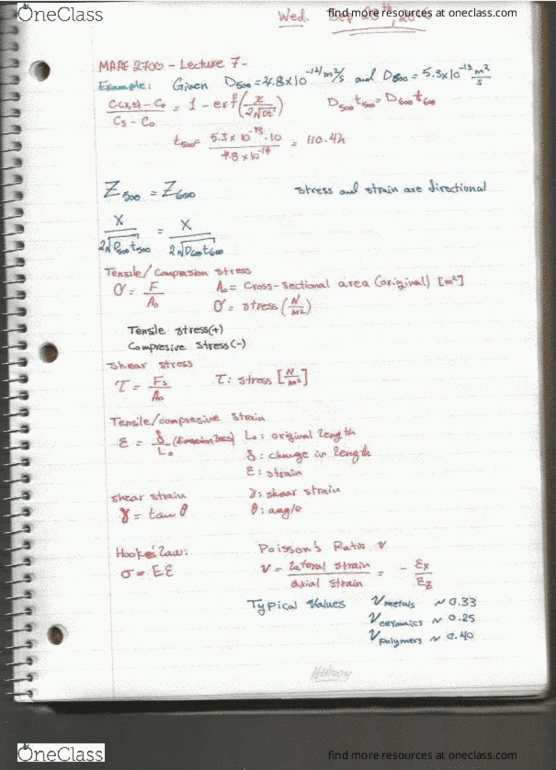 OneClass
find more resources at oneclass.com
Wed. Sep 28th, 2016
MAAE 2700 - Lecture 7-
Example: Given D500 = 4.8x10^-14 m²/s and D600 = 5.3x10^-13 m²/s
C(x,t) - Co / Cs - Co = 1 - erf(x / 2√Dt) D500 t500 = D600 t600
t500 = 5.3x10^-13 · 10 / 4.8x10^-14 = 110.4h
Z500 = Z600 stress and strain are directional
x / 2√D500 t500 = x / 2√D600 t600
Tensile/Compression stress
σ = F / Ao Ao = Cross-sectional area (original) [m²]
σ = stress (N/m²)
Tensile stress (+)
Compresive Stress (-)
Shear stress
τ = Fs / Ao τ: stress [N/m²]
Tensile/compresive strain
ε = δ / Lo (dimensionless) Lo: original length
δ: change in length
ε: strain
shear strain γ: shear strain
γ = tan θ θ: angle
Hooke's Law: Poisson's Ratio ν
σ = Eε ν = lateral strain / axial strain = - εx / εz
Typical Values ν metals ~ 0.33
ν ceramics ~ 0.25
ν Polymers ~ 0.40
OneClass
find more resources at oneclass.com